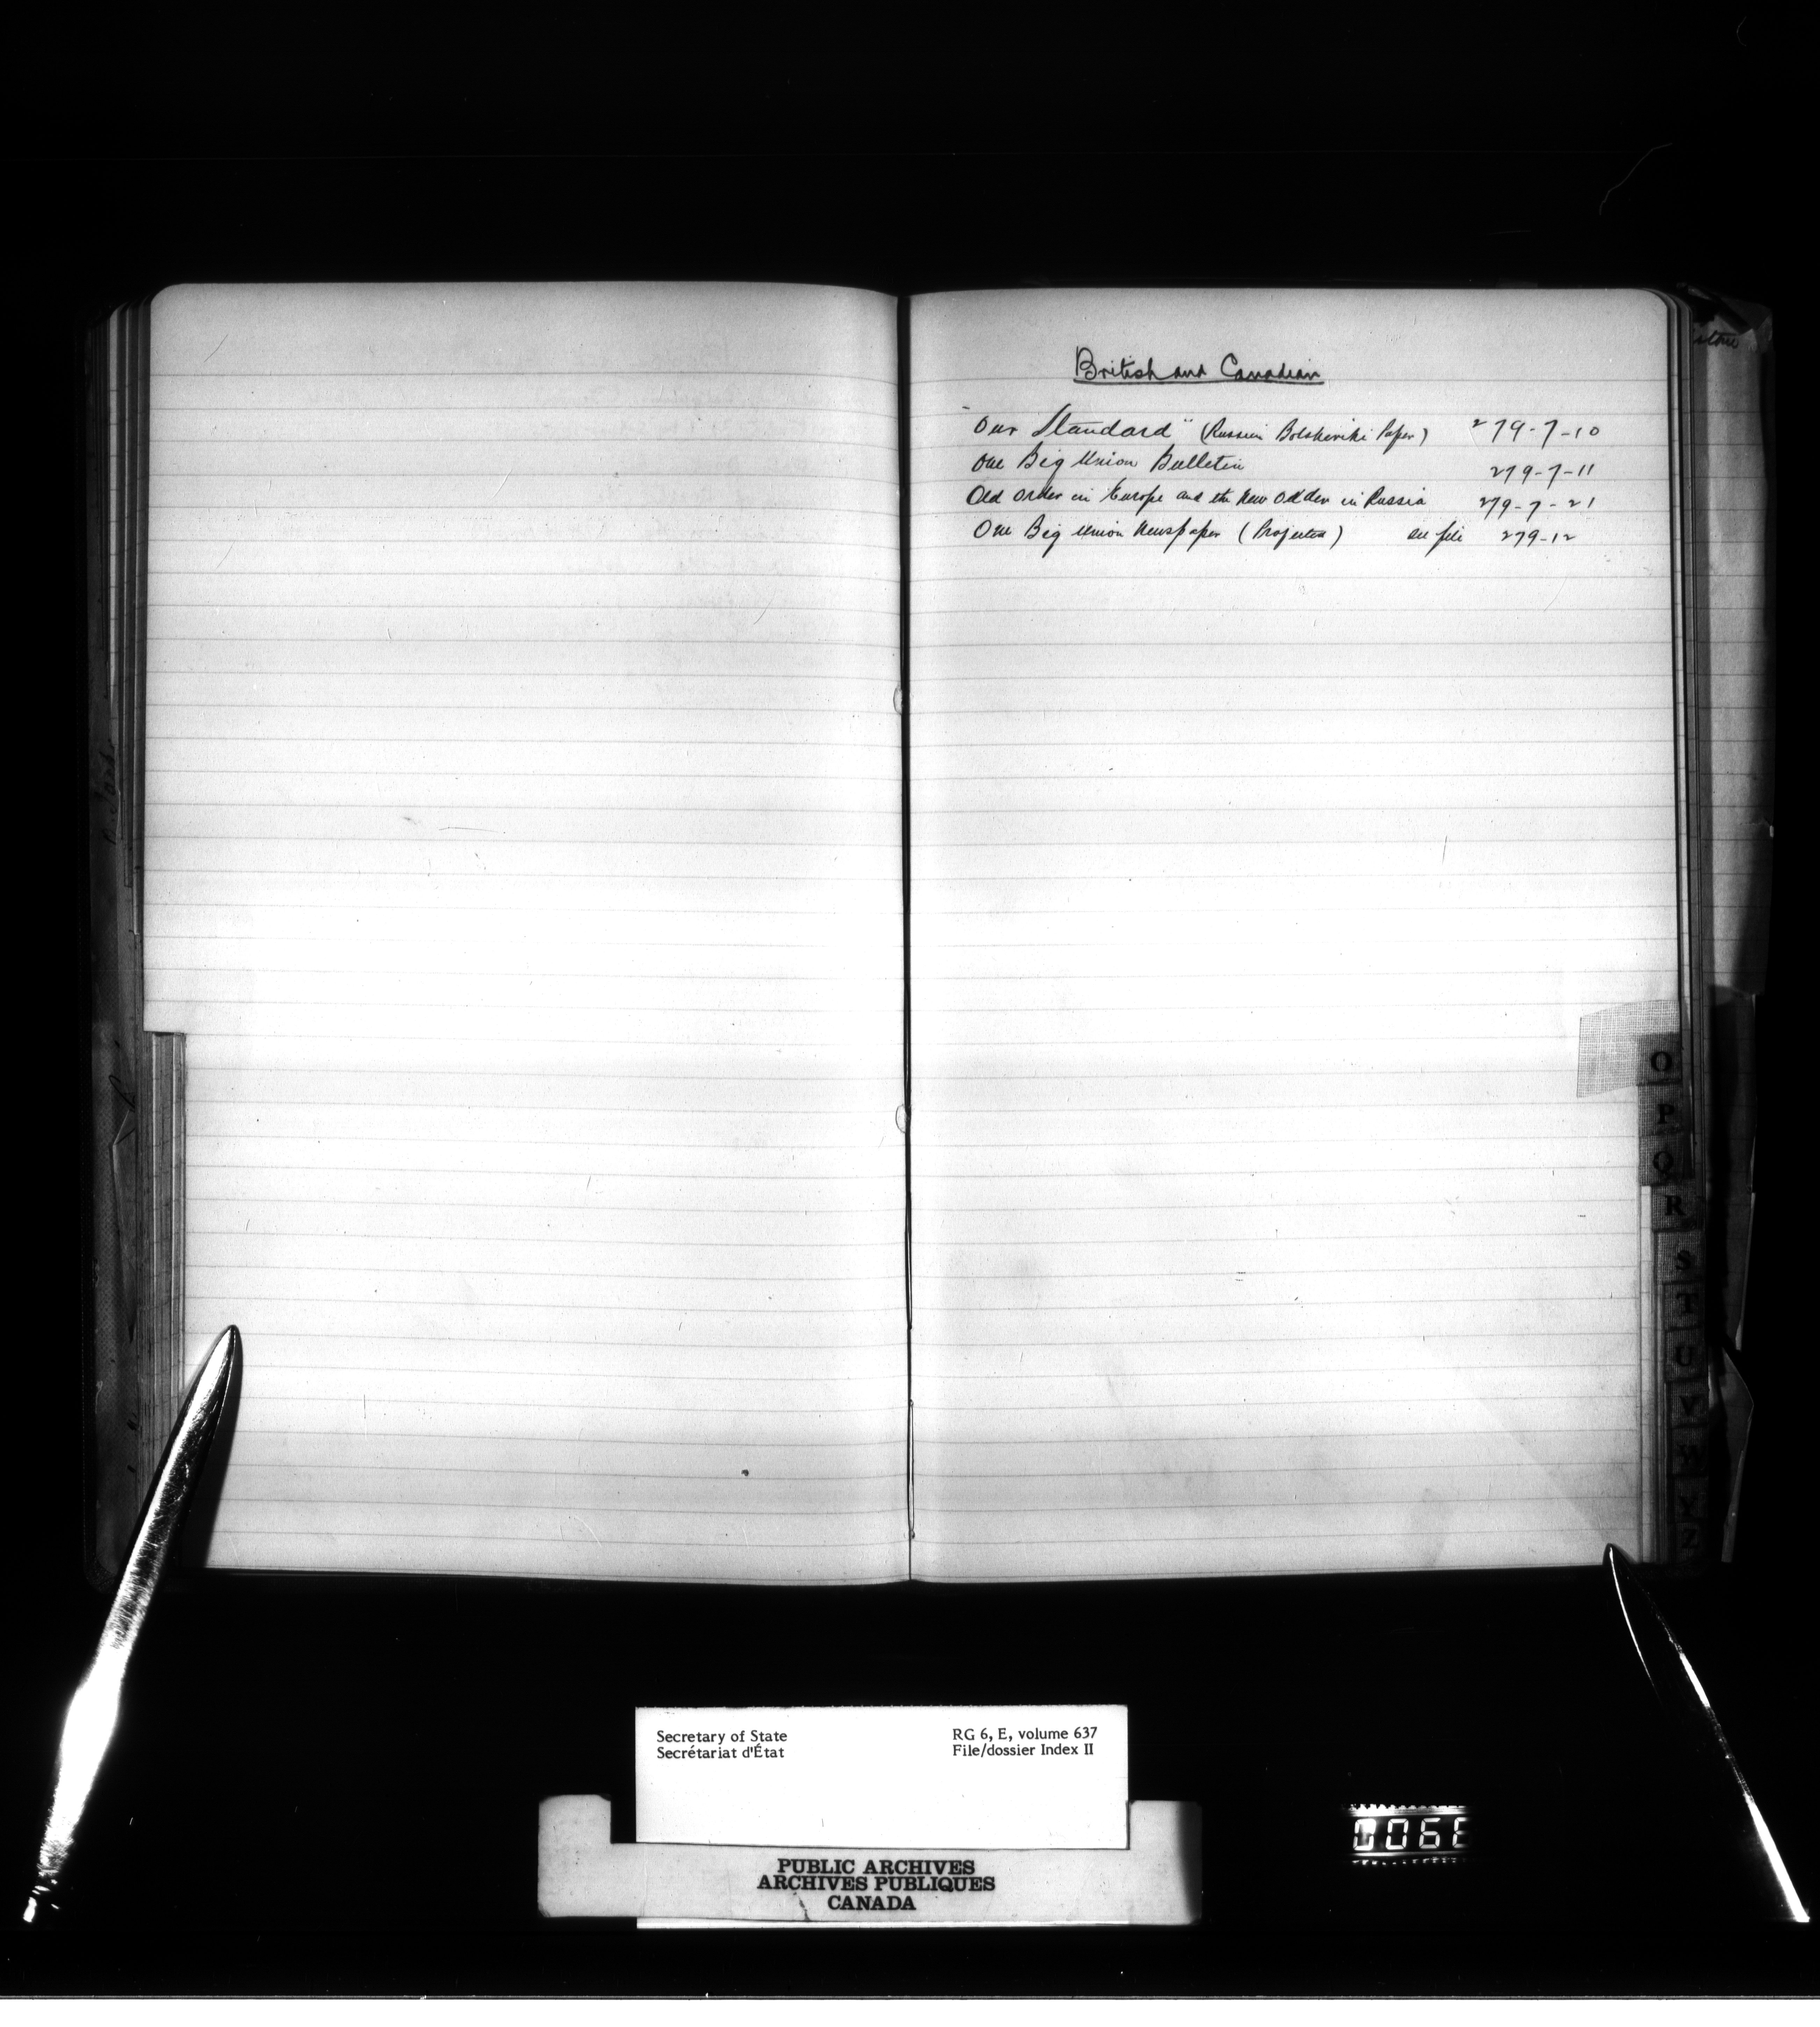 British and Canadian
"Our Standard" (Russian Bolsheviki Paper) 279-7-10
One Big Union Bulletin 279-7-11
Old order in Europe and the New Odder in Russia 279-7-21
One Big Union Newspaper (Projected) see file 279-12
O
P
Q
R
S
T
U
V
W
Y
Z
Secretary of State
Secrétariat d'État
RG 6, E, volume 637
File/dossier Index II
PUBLIC ARCHIVES
ARCHIVES PUBLIQUES
CANADA